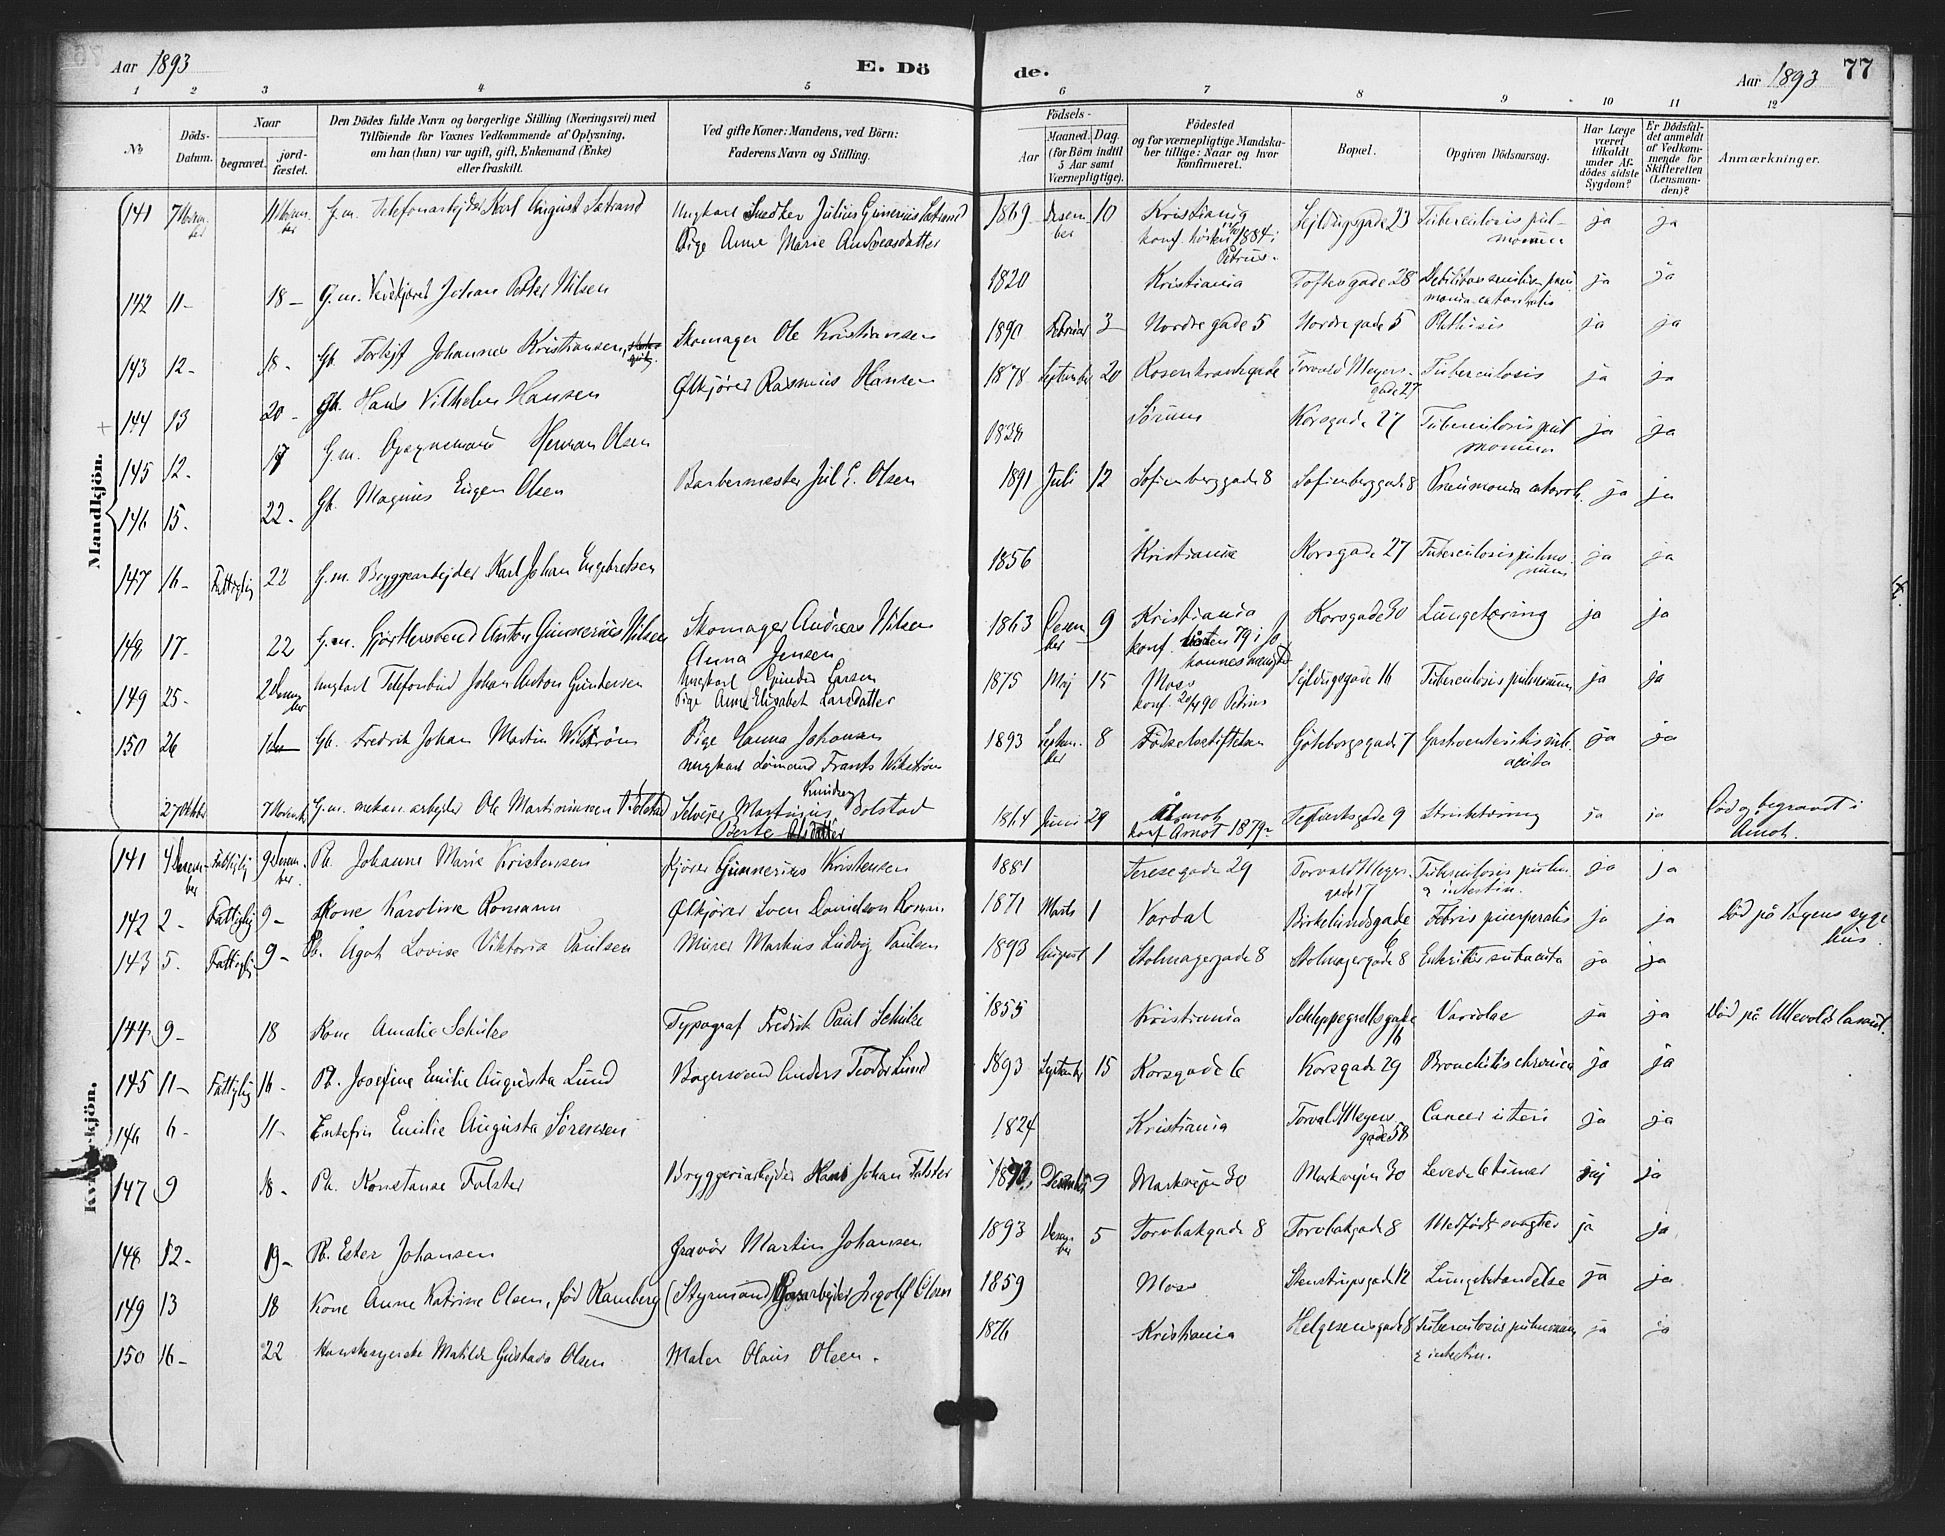 Aar 1893
E. Dö
de.
Aar 1893
77
1 2 3 4 5 6 7 8 9 10 11 12
No.
Döds-Datum.
Naar
begravet.
jord-fæstet.
Den Dödes fulde Navn og borgerlige Stilling (Næringsvei) med
Tilföiende for Voxnes Vedkommende af Oplysning,
om han (hun) var ugift, gift, Enkemand (Enke)
eller fraskilt.
Ved gifte Koner: Mandens, ved Börn:
Faderens Navn og Stilling.
Födsels-
Aar
Maaned. Dag.
(for Börn indtil
5 Aar samt
Værnepligtige).
Födested
og for værnepligtige Mandska-
ber tillige: Naar og hvor
konfirmeret.
Bopæl.
Opgiven Dödsaarsag.
Har Læge
været
tilkaldt
under Af-
dödes sidste
Sygdom?
Er Dödsfal-
det anmeldt
af Vedkom-
mende for
Skifteretten
(Lensman-
den)?
Anmærkninger.
Mandkjön.
141 7 Novem-ber 11 Novem-ber G.m. Telefonarbejder Karl August Sætrand Ungkarl Snedker Julius Gunerius Sætrand
Pige Anne Marie Andreasdatter 1869 Desem-ber 10 Kristiania
konf. 1884 i
Petrus. Sejldugsgade 23 Tuberculosis pul-
monum ja ja
142 11- 18- G.m. Johan Petter Nilsen 1820 Kristiania Toftesgade 28 ja ja
143 12- 18- Gb. Johannes Kristiansen, Skomager Ole Kristiansen 1890 Februar 3 Nordregade 5 Nordregade 5 Phthisis ja ja
144 13 20- Gb. Hans Vilhelm Hansen Ølkjører Rasmus Hansen 1878 September 20 Rosenkrantzgade Torvald Meyers-
gade 27 Tuberculosis ja ja
145 12- 17 G.m. Opsynsmand Herman Olsen Sørum Korsgade 27 Tuberculosis pul
monum ja ja
146 15- 22- Gb. Magnus Eugen Olsen Barbermester Jul. E. Olsen 1891 Juli 12 Sofienberggade 8 Sofienberggade 8 Pneumonia catarrh. ja ja
147 16- Fattiglig 22 G.m. Bryggearbejder Karl Johan Engebretsen 1856 Kristiania Korsgade 27 Tuberculosis pulmo-
num ja ja
148 17- 22 G.m. Anton Gunnerius Nilsen Skomager Andreas Nilsen
Anna Jensen 1863 Desem-
ber 9 Kristiania
konf. høsten 79 i Jo
hannes menighed Korsgade 30 Lungetæring ja ja
149 25- 2 Desem-ber Ungkarl Telefonbud Johan Anton Gundersen Ungkarl Gunder Larsen
Pige Anne Elisabet Larsdatter 1875 Maj 15 Moss
konf. 20/4 90 Petrus Sejldugsgade 16 Tuberculosis pulmonum ja ja
150 26 Gb. Fredrik Johan Martin Wikstrøm Pige Hanna Johansen
Ungkarl Sømand Frants Wikstrøm 1893 Septem-
ber 8 Fødselsstiftelsen Göteborgsgade 7 Gastroenteritis sub-
acuta ja ja
27 Oktober 7 Novemb. G.m. mekan. arbejder Ole Martiniussen Bolstad Selvejer Martinius Knudsen Bolstad
Berte Olsdatter 1864 Juni 29 Aamot
konf Amot 1879 9 Strubetæring ja ja Død og begravet i
Åmot.
Kvindekjön.
141 4 Desem-ber Fattiglig 9 Desem-ber. Pb. Johanne Marie Kristensen Kjører Gunnerius Kristensen 1881 Teresegade 29 Torvald Meyers-
gade 17 Tuberculosis pulm.
& intestin. ja ja
142 2- Fattiglig 9- Kone Karoline Romann Ølkjører Sven Danielsen Roman 1871 Marts 1 Vardal Birkelundsgade Febris puerperalis ja ja Død på byens syge
hus.
143 5. Fattiglig 9- Pb. Agot Lovise Viktoria Paulsen Murer Markus Ludvig Paulsen 1893 August 1 Stolmagergade 8 Stolmagergade 8 Enteritis subacuta ja ja
144 9- 18 Kone Amalie Schulze Typograf Fredrik Paul Schulze 1855 Kristiania Schleppegrellsgade
16 Variolae ja ja Død på Ullevold lasaret.
145 11- Fattiglig 16- Pb. Josefine Emilie Augusta Lund Bagersvend Anders Teodor Lund 1893 September 15 Korsgade 6 Korsgade 29 Bronchitis chronica ja ja
146 6- 11- Enkefru Emilie Augusta Sørensen 1824 Kristiania Torvald Meyers
gade 58 Cancer uteri ja ja
147 9 18- Pb. Konstanse Falster Bryggeriarbejder Hans Johan Falster 1893 Desember 9 Markvejen 30 Markvejen 30 Levede 6 timer ja
148 12- 19- Pb. Ester Johansen Gravör Martin Johansen 1893 Desem-
ber 5 Torvbakgade 8 Torvbakgade 8 Medfødt svaghed ja ja
149 13 18 Kone Anne Katrine Olsen, fød Ramberg (Styrmand) Gasarbejder Ingolf Olsen 1859 Moss Stenstrupsgade 12 Lungebetændelse ja ja
150 16- 22 Hanskesyerske Matilde Gustava Olsen Maler Olaus Olsen. 1876 Kristiania Helgesensgade 8 Tuberculosis pulmonum
& intestin. ja ja